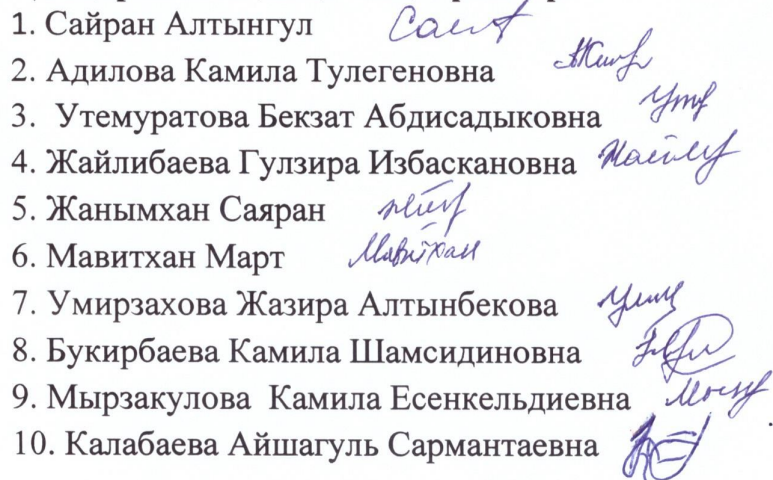 1. Сайран Алтынгул
2. Адилова Камила Тулегеновна
3. Утемуратова Бекзат Абдисадыковна
4. Жайлибаева Гулзира Избаскановна
5. Жанымхан Саяран
6. Мавитхан Март Мавитхан
7. Умирзахова Жазира Алтынбекова
8. Букирбаева Камила Шамсидиновна
9. Мырзакулова Камила Есенкельдиевна
10. Калабаева Айшагуль Сармантаевна